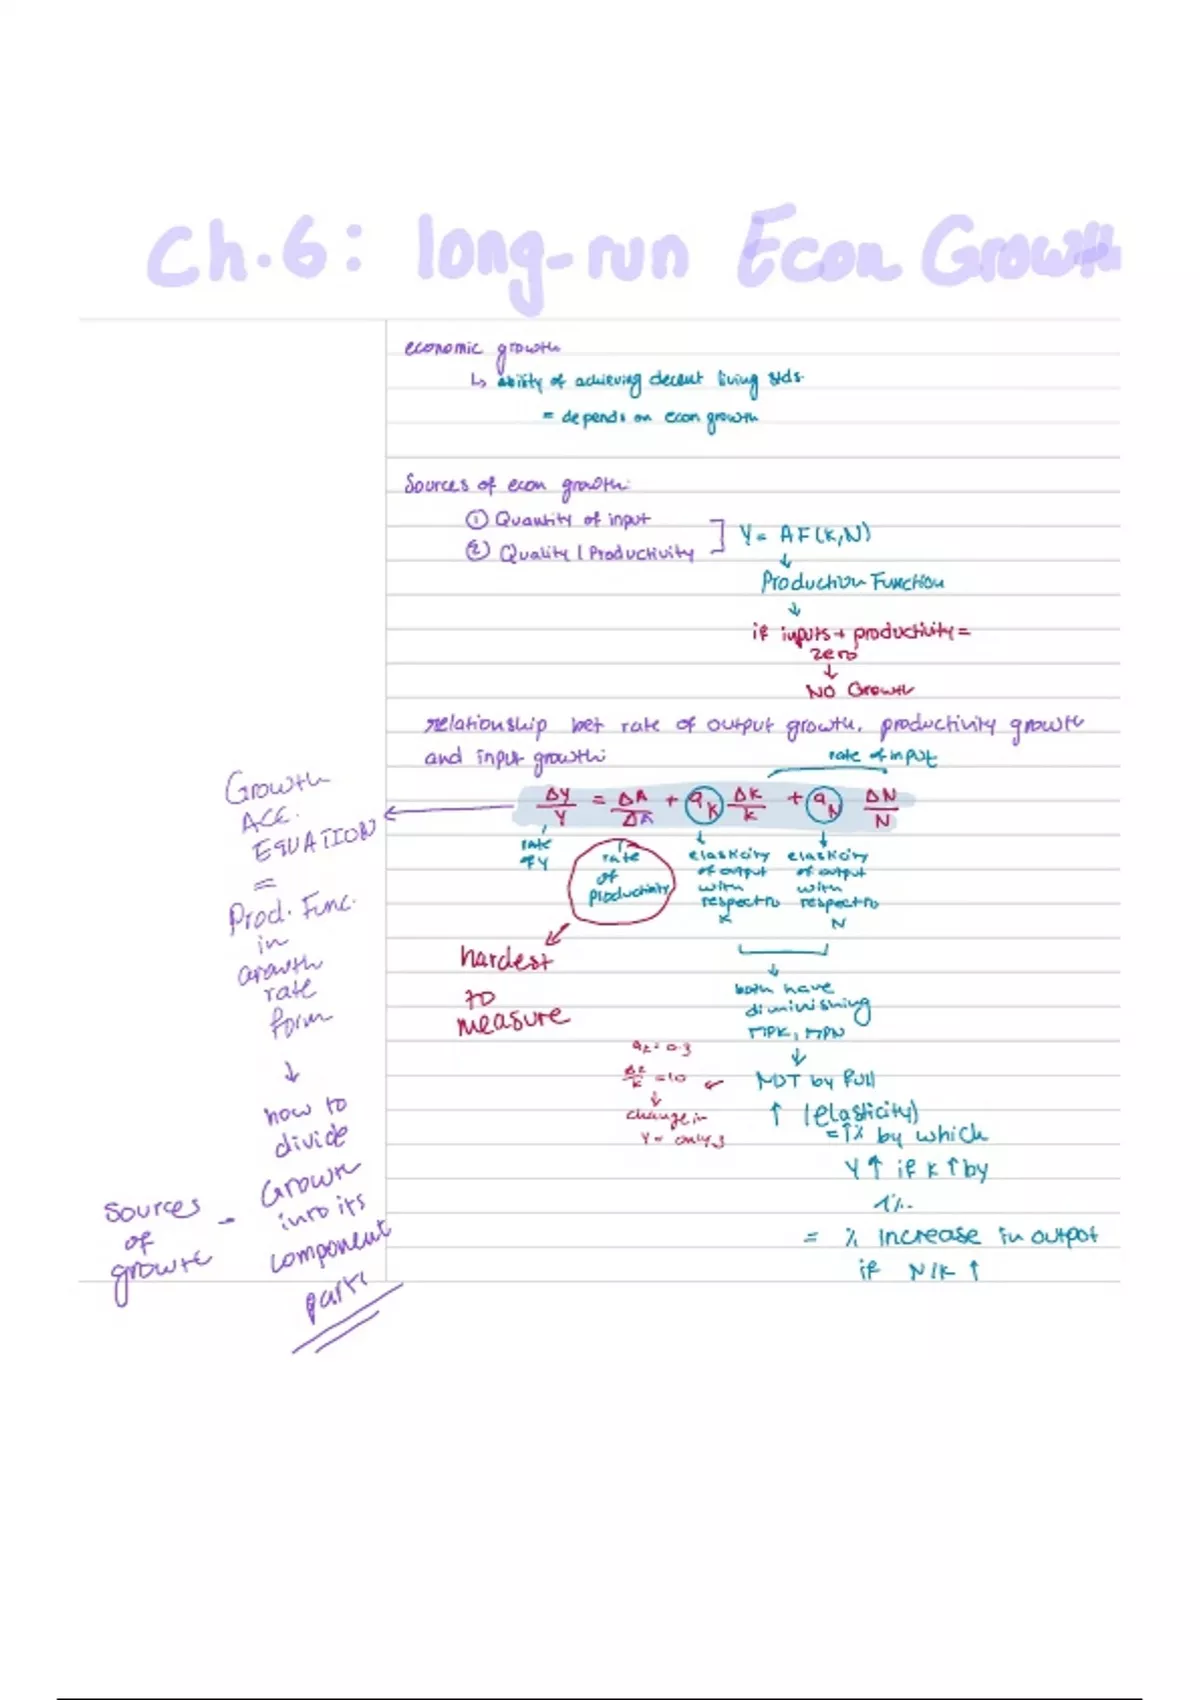 Ch.6: long-run Econ Growth
economic growth
↳ ability of achieving decent living stds.
= depends on econ growth
Sources of econ growth:
① Quantity of input
② Quality / Productivity
Y = AF(K,N)
↓
Production Function
↓
if inputs + productivity =
zero
↓
NO Growth
relationship bet rate of output growth, productivity growth
and input growth:
rate of input
ΔY/Y = ΔA/ΔA + aK ΔK/K + aN ΔN/N
rate
of Y
rate
of
productivity
elasticity
of output
with
respect to
K
elasticity
of output
with
respect to
N
hardest
to
measure
both have
diminishing
MPK, MPN
↓
NOT by full
↑ (elasticity)
= 1% by which
Y ↑ if K ↑ by
1%.
= % increase in output
if N/K ↑
aK = 0.3
ΔK/K = 10
↓
change in
Y = only 3
Growth
ACC.
EQUATION
=
Prod. Func.
in
Growth
rate
form
↓
how to
divide
Growth
into its
component
parts
Sources
of
growth